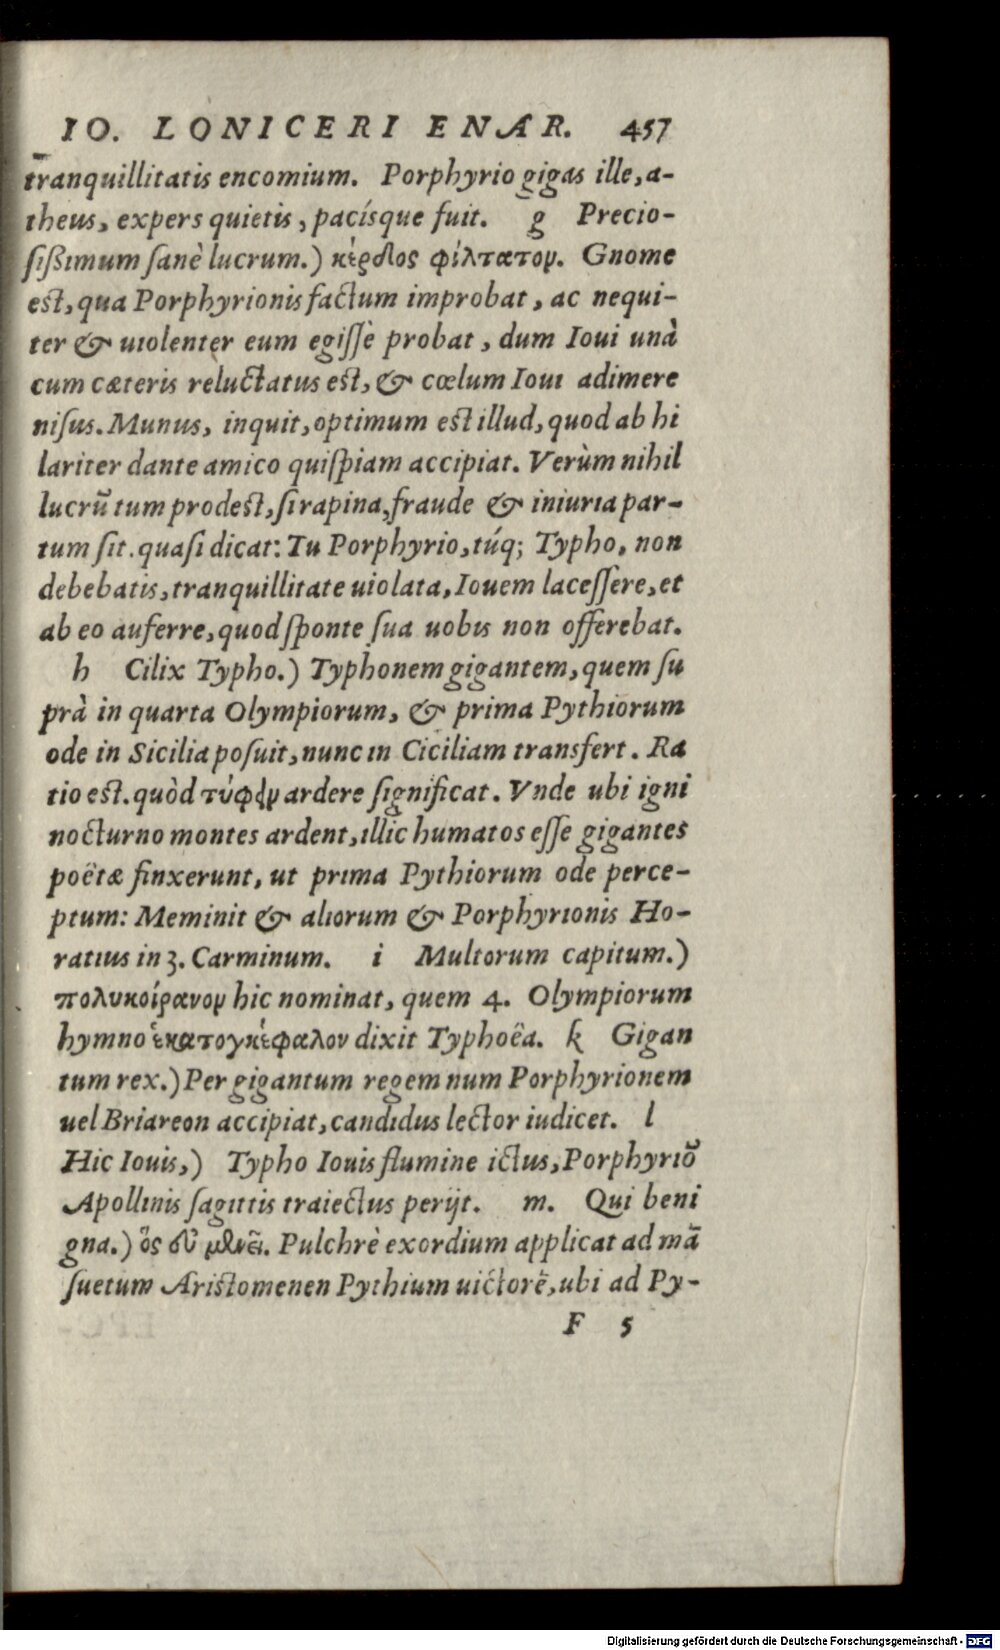 IO. LONICERI ENAR. 457
tranquillitatis encomium. Porphyrio gigas ille, a-
theus, expers quietis, pacísque fuit. g Precio-
sißimum sanè lucrum.) κέρδος φίλτατον. Gnome
est, qua Porphyrionis factum improbat, ac nequi-
ter & uiolenter eum egissè probat, dum Ioui unà
cum cæteris reluctatus est, & cœlum Ioui adimere
nisus. Munus, inquit, optimum est illud, quod ab hi
lariter dante amico quispiam accipiat. Verùm nihil
lucrū tum prodest, si rapina, fraude & iniuria par-
tum sit. quasi dicat: Tu Porphyrio, túq; Typho, non
debebatis, tranquillitate uiolata, Iouem lacessere, et
ab eo auferre, quod sponte sua uobis non offerebat.
h Cilix Typho.) Typhonem gigantem, quem su
prà in quarta Olympiorum, & prima Pythiorum
ode in Sicilia posuit, nunc in Ciciliam transfert. Ra
tio est. quòd τύφειν ardere significat. Vnde ubi igni
nocturno montes ardent, illic humatos esse gigantes
poëtæ finxerunt, ut prima Pythiorum ode perce-
ptum: Meminit & aliorum & Porphyrionis Ho-
ratius in 3. Carminum. i Multorum capitum.)
πολυκοίρανον hic nominat, quem 4. Olympiorum
hymno ἑκατογκέφαλον dixit Typhoëa. k Gigan
tum rex.) Per gigantum regem num Porphyrionem
uel Briareon accipiat, candidus lector iudicet. l
Hic Iouis,) Typho Iouis flumine ictus, Porphyriō
Apollinis sagittis traiectus perijt. m. Qui beni
gna.) ὃς εὐ μενεῖ. Pulchrè exordium applicat ad mā
suetum Aristomenen Pythium uictorē, ubi ad Py-
F 5
Digitalisierung gefördert durch die Deutsche Forschungsgemeinschaft - DFG